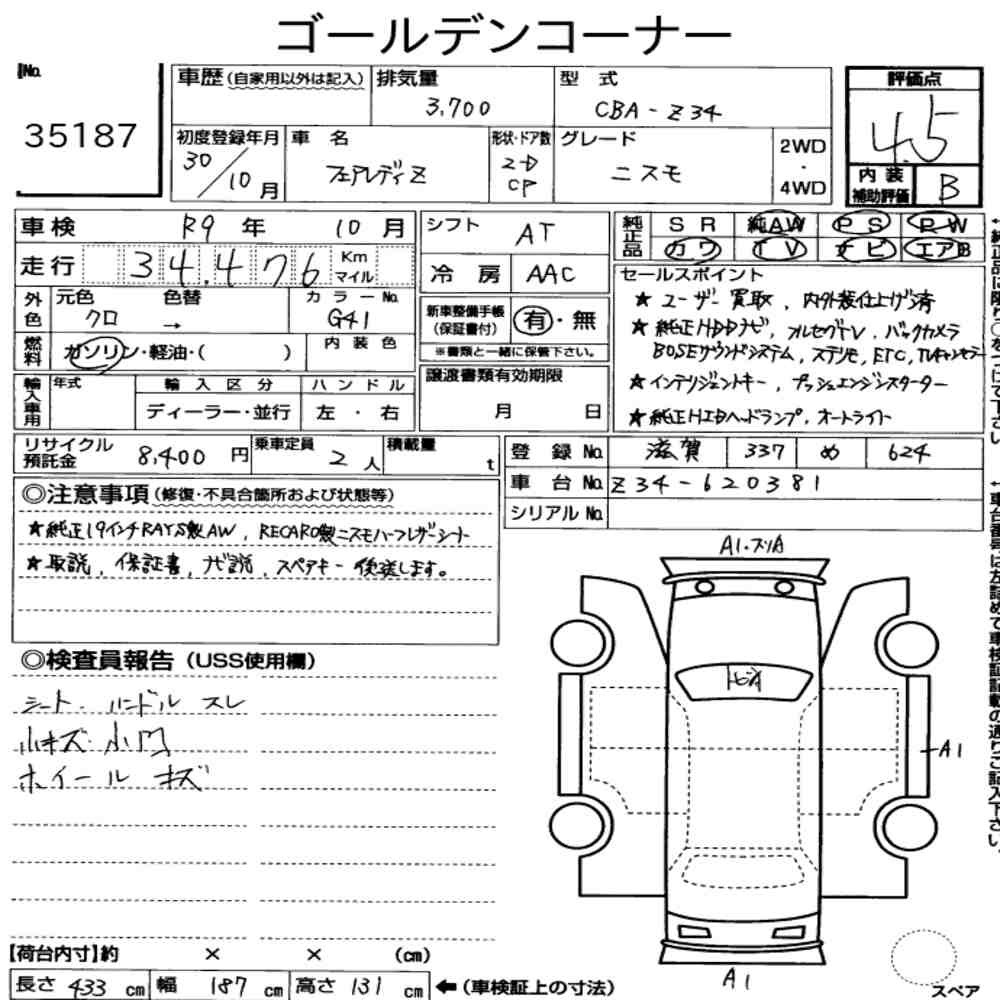 ゴールデンコーナー
No.
35187
車歴(自家用以外は記入) 排気量 型 式 評価点
3,700 CBA-Z34 4.5
初度登録年月 車 名 形状・ドア数 グレード 2WD・4WD
30/10月 フェアレディZ 2-D CP ニスモ
内装補助評価 B
車検 R9 年 10 月 シフト AT 純正品 SR 純AW PS PW
カワ TV ナビ エアB
走行 34,476 Km マイル 冷 房 AAC セールスポイント
外色 元色 色替 カラーNo. 新車整備手帳(保証書付) 有・無
クロ → G41
内 装 色 ※書類と一緒に保管下さい。
燃料 ガソリン・軽油・( )
★ユーザー買取、内外装仕上げ済
★純正HDDナビ、フルセグTV、バックカメラ
BOSEサウンドシステム、ステリモ、ETC、TVキャンセラー
★インテリジェントキー、プッシュエンジンスターター
★純正HIDヘッドランプ、オートライト
輸入車用 年式 輸 入 区 分 ハ ン ド ル 譲渡書類有効期限
ディーラー・並行 左 ・ 右 月 日
リサイクル預託金 8,400 円 乗車定員 2 人 積載量 t
登 録 No. 滋賀 337 め 624
車 台 No. Z34-620381
シリアル No.
◎注意事項(修復・不具合箇所および状態等)
★純正19インチRAYS製AW、RECARO製ニスモハーフレザーシート
★取説、保証書、ナビ説、スペアキー後送します。
←純正品に限り○をつけて下さい
←車台番号は左詰めで車検証記載の通りご記入下さい。
◎検査員報告(USS使用欄)
シート・ハンドル スレ
小キズ 小凹
ホイール キズ
A1.スリA
トビA
A1
A1
スペア
【荷台内寸】約 × × (cm)
長さ 433 cm 幅 187 cm 高さ 131 cm ←(車検証上の寸法)